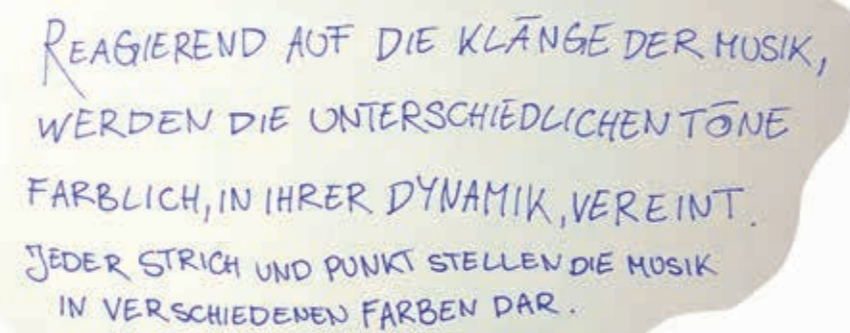 REAGIEREND AUF DIE KLÄNGE DER MUSIK,
WERDEN DIE UNTERSCHIEDLICHEN TÖNE
FARBLICH, IN IHRER DYNAMIK, VEREINT.
JEDER STRICH UND PUNKT STELLEN DIE MUSIK
IN VERSCHIEDENEN FARBEN DAR.